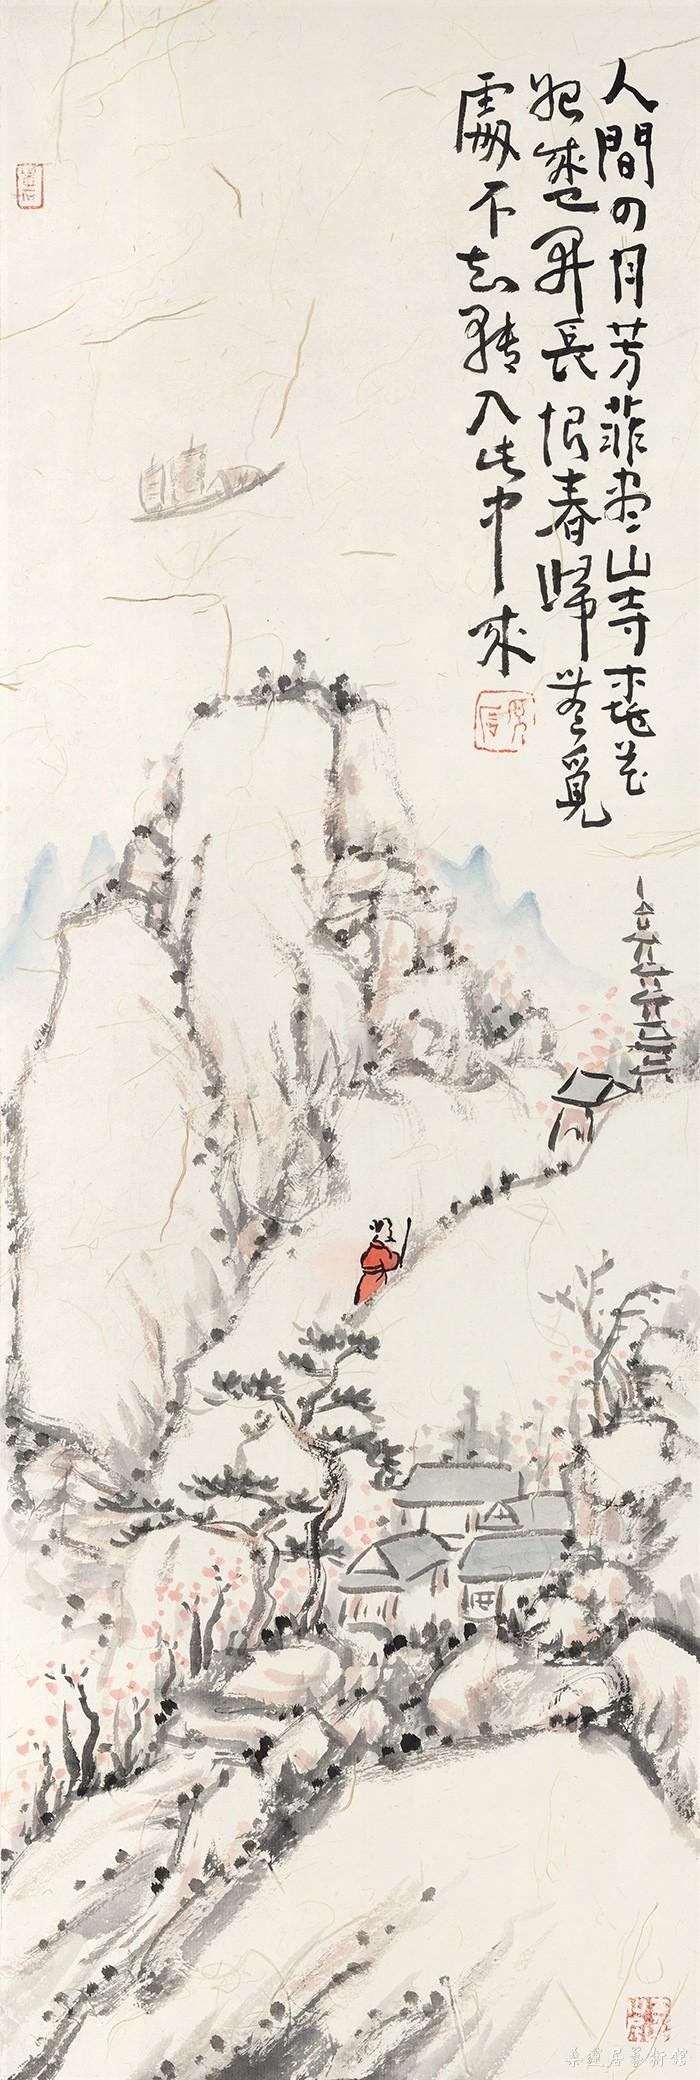 人間四月芳菲盡山寺桃花
始盛開長恨春歸無覓
處不知轉入此中來
蓮居藝術館